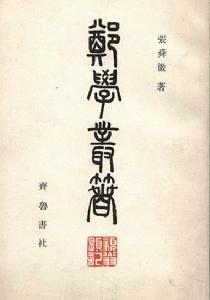 張舜徽 著
鄭學叢箸
齊魯書社